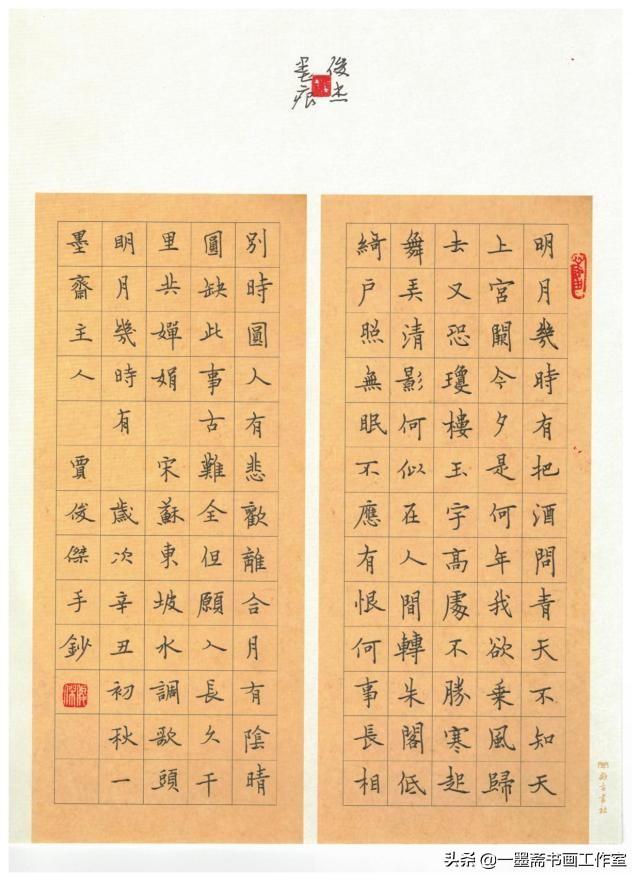 俊杰
痕
明月幾時有把酒問青天不知天
上宮闕今夕是何年我欲乘風歸
去又恐瓊樓玉宇高處不勝寒起
舞弄清影何似在人間轉朱閣低
綺戶照無眠不應有恨何事長相
別時圓人有悲歡離合月有陰晴
圓缺此事古難全但願人長久千
里共嬋娟 宋蘇東坡水調歌頭
明月幾時有 歲次辛丑初秋一
墨齋主人 賈俊傑手鈔
头条 @一墨斋书画工作室